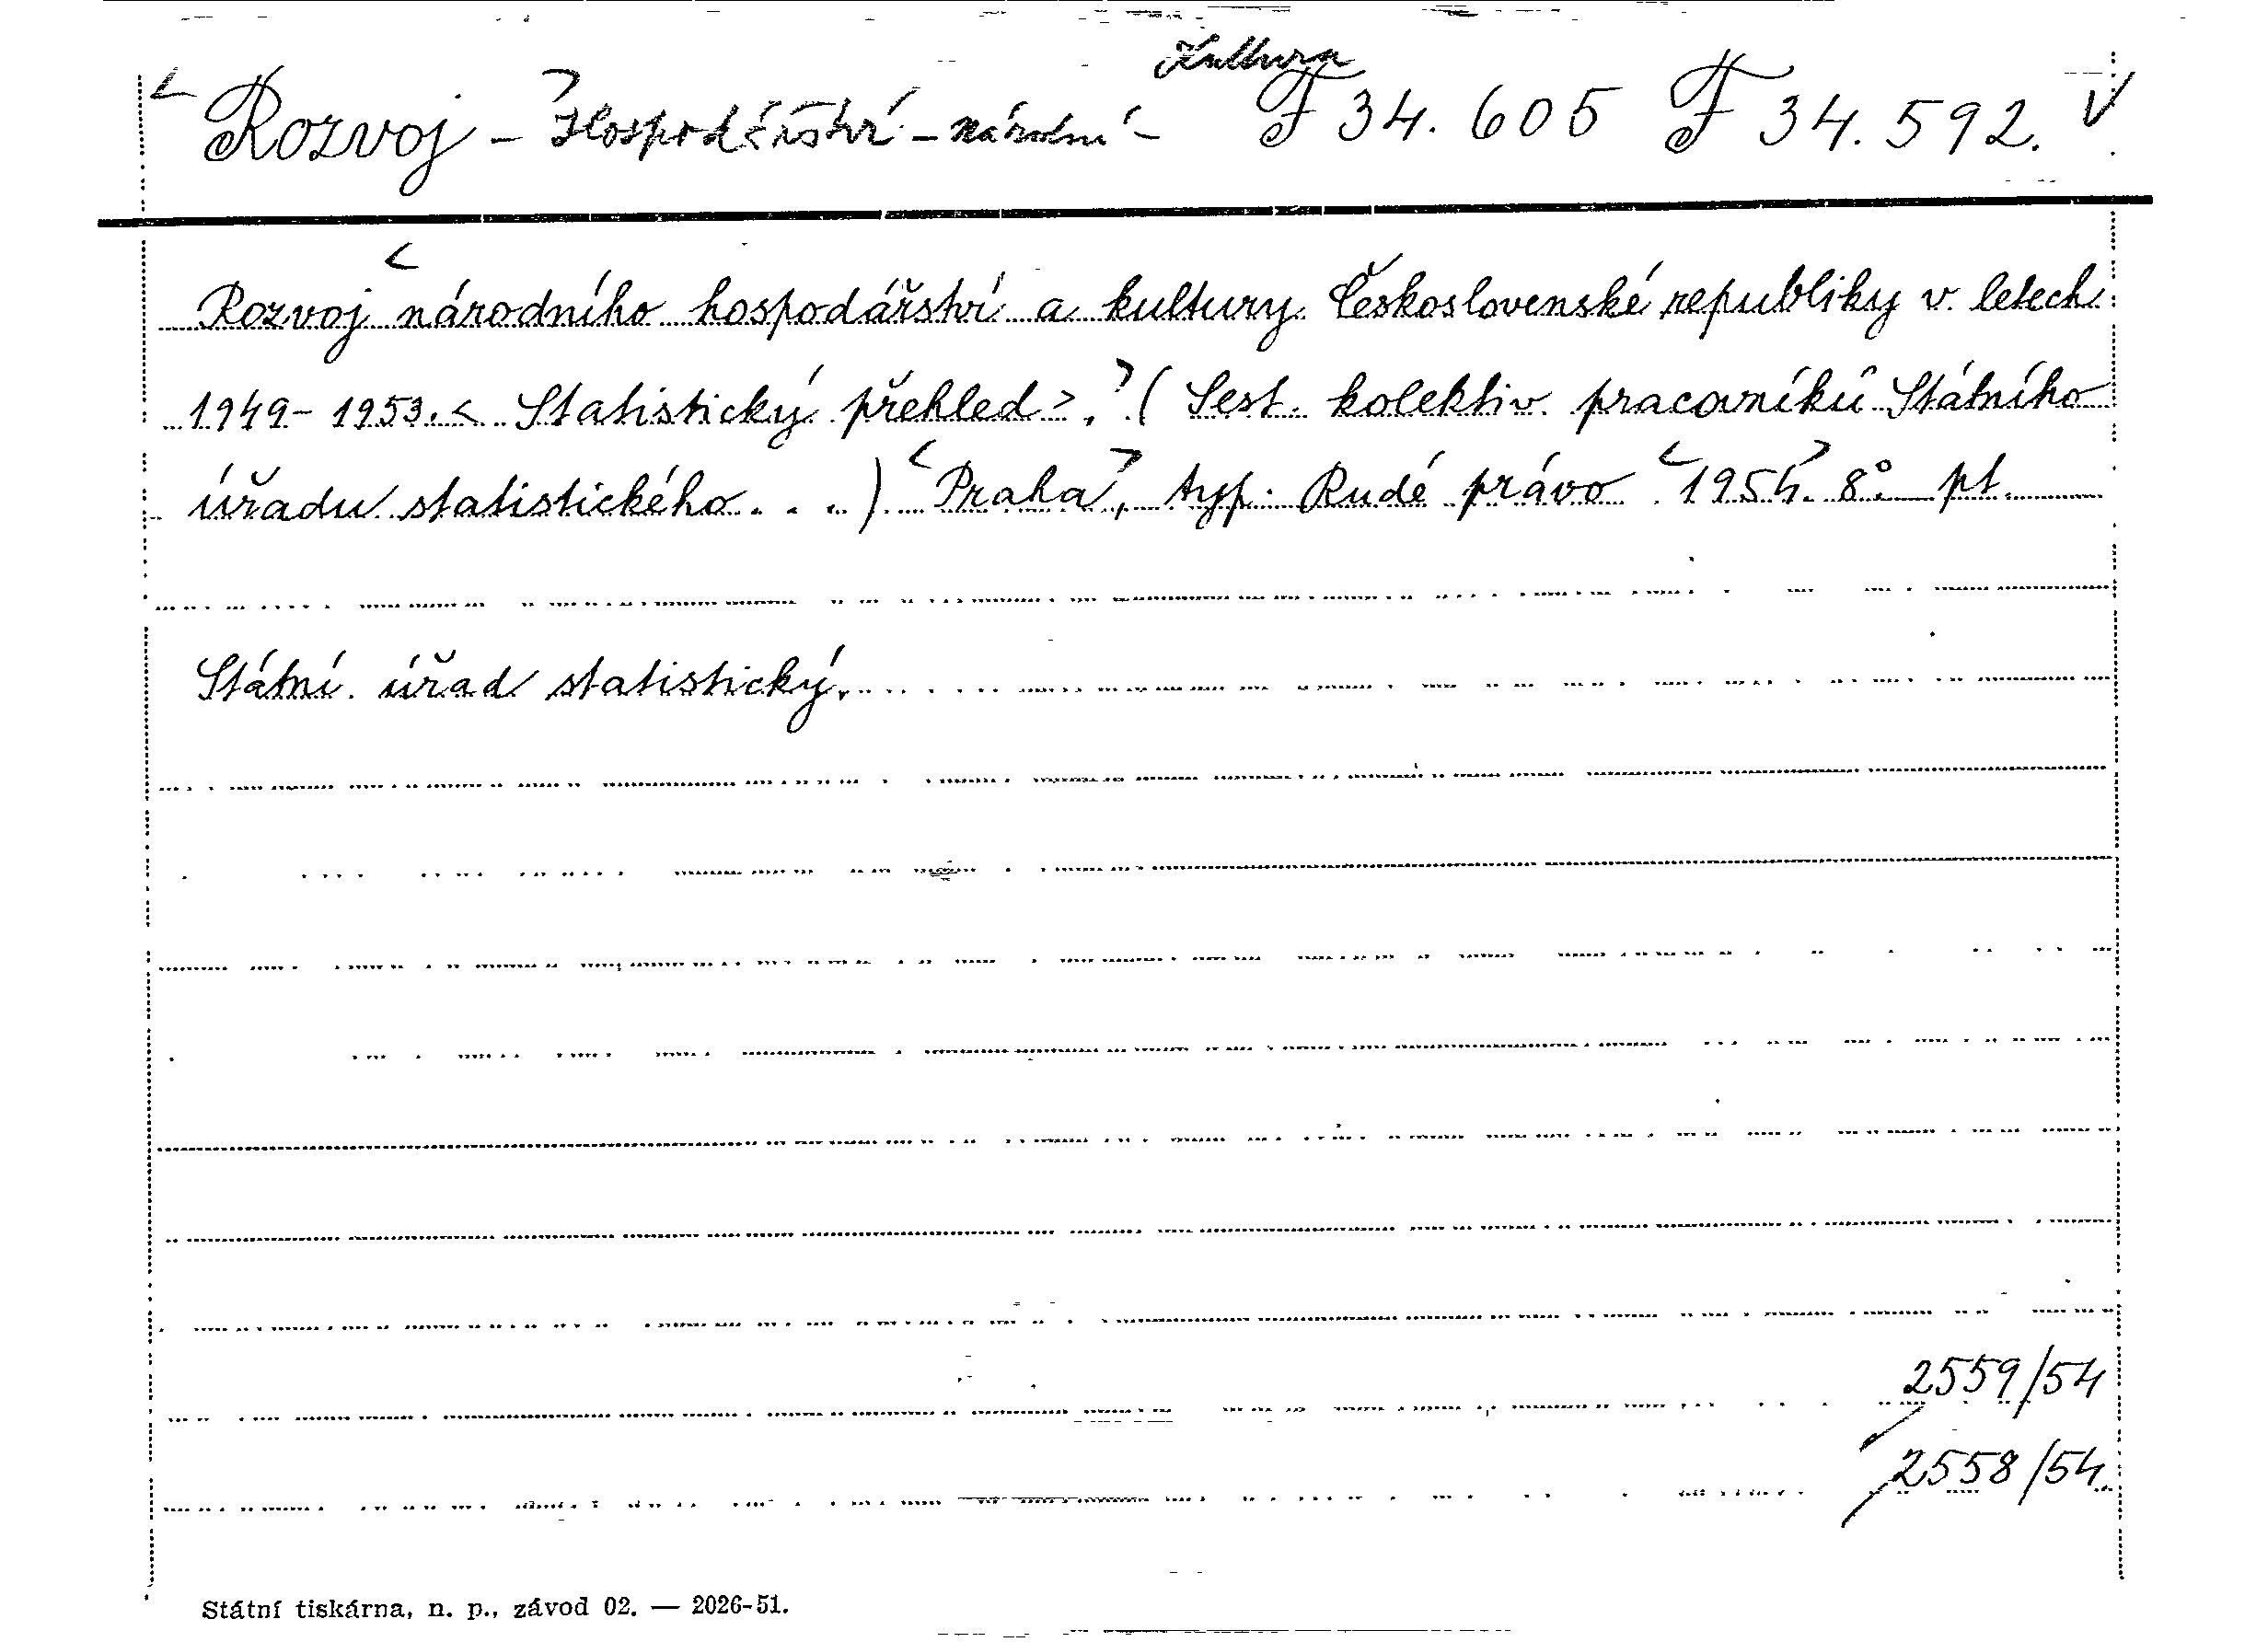 Kultura
< Rozvoj > - Hospodářství - národní - F 34.605 F 34.592. V
Rozvoj < národního hospodářství a kultury Československé republiky v letech
1949-1953. < Statistický přehled >. > ( Sest. kolektiv pracovníků Státního
úřadu statistického . . . ) < Praha >, typ. Rudé právo < 1954 >. 8° pt.
Státní úřad statistický.
2559/54
2558/54
Státní tiskárna, n. p., závod 02. — 2026-51.